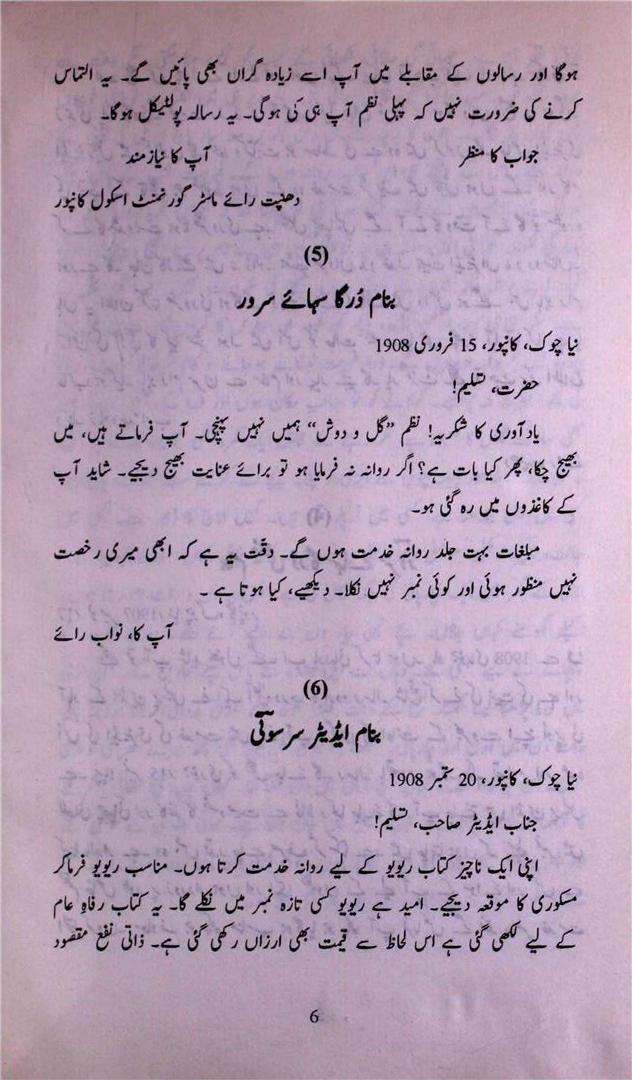 ہوگا اور رسالوں کے مقابلے میں آپ اسے زیادہ گراں بھی پائیں گے۔ یہ التماس
کرنے کی ضرورت نہیں کہ پہلی نظم آپ ہی کی ہوگی۔ یہ رسالہ پولٹیکل ہوگا۔
جواب کا منتظر آپ کا نیازمند
دھنپت رائے ماسٹر گورنمنٹ اسکول کانپور
(5)
بنام دُرگا سہائے سرور
نیا چوک، کانپور، 15 فروری 1908
حضرت، تسلیم!
یادآوری کا شکریہ! نظم ”گل و دوش“ ہمیں نہیں پہنچی۔ آپ فرماتے ہیں، میں
بھیج چکا، پھر کیا بات ہے؟ اگر روانہ نہ فرمایا ہو تو برائے عنایت بھیج دیجیے۔ شاید آپ
کے کاغذوں میں رہ گئی ہو۔
مبلغات بہت جلد روانہ خدمت ہوں گے۔ دقّت یہ ہے کہ ابھی میری رخصت
نہیں منظور ہوئی اور کوئی نمبر نہیں نکلا۔ دیکھیے، کیا ہوتا ہے ۔
آپ کا، نواب رائے
(6)
بنام ایڈیٹر سرسوتی
نیا چوک، کانپور، 20 ستمبر 1908
جناب ایڈیٹر صاحب، تسلیم!
اپنی ایک ناچیز کتاب ریویو کے لیے روانہ خدمت کرتا ہوں۔ مناسب ریویو فرماکر
مسکوری کا موقعہ دیجیے۔ امید ہے ریویو کسی تازہ نمبر میں نکلے گا۔ یہ کتاب رفاہِ عام
کے لیے لکھی گئی ہے اس لحاظ سے قیمت بھی ارزاں رکھی گئی ہے۔ ذاتی نفع مقصود
6